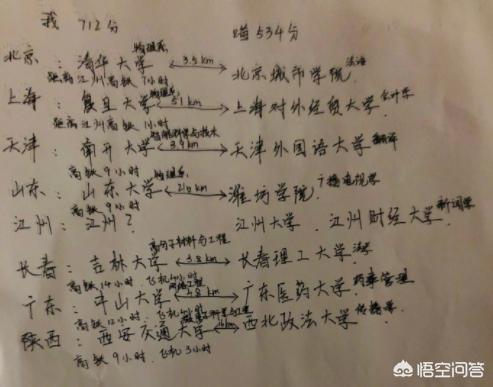 我 712分 喵534分
物理系
北京：清华大学 3.5km 北京城市学院 法语
距离江州高铁7小时 物理系
上海：复旦大学 51km 上海对外经贸大学 会计学
距离江州高铁1小时 智能科学与技术
天津：南开大学 3.9km 天津外国语大学 翻译
高铁9小时 物理系
山东：山东大学 216km 潍坊学院 广播电视学
高铁9小时
江州：江州？ 江州大学．江州财经大学 新闻学
高分子材料与工程
长春：吉林大学 3.8km 长春理工大学 法学
高铁14小时．飞机4小时 工程
广东：中山大学 48km 广东医药大学 药事管理
高铁12小时 飞机 材料科学与工程
陕西：西安交通大学 4km 西北政法大学 传播学
高铁9小时．飞机3小时
悟空问答